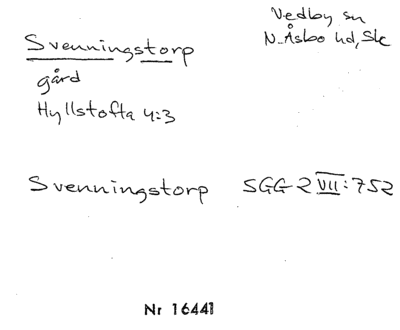 Vedby sn
Svenningstorp N. Åsbo hd, Sk
gård
Hyllstofta 4:3
Svenningstorp SGG 2 VII: 752
Nr 16441